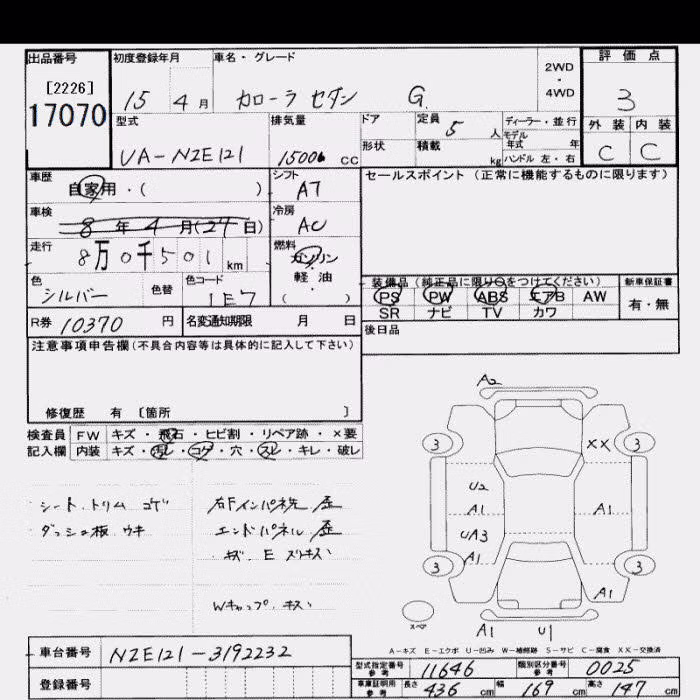 出品番号 初度登録年月 車名・グレード 2WD・4WD 評価点
[2226] 15 4月 カローラ セダン G. 3
17070 型式 排気量 ドア 定員 5人 ディーラー・並行 外装 内装
UA-NZE121 1500 cc 形状 積載 kg モデル年式 年 C C
ハンドル 左・右
車歴 自家用・( ) シフト AT セールスポイント (正常に機能するものに限ります)
車検 8年4月(24日) 冷房 AC
走行 8万0千501 km 燃料 ガソリン
軽・油
( )
色 シルバー 色替 色コード 1E7 装備品 (純正品に限り○をつけてください) 新車保証書
PS PW ABS エアB AW 有・無
SR ナビ TV カワ
R券 10370 円 名変通知期限 月 日 後日品
注意事項申告欄(不具合内容等は具体的に記入して下さい)
修復歴 有 〔箇所 〕
検査員 FW キズ・飛石・ヒビ割・リペア跡・×要
記入欄 内装 キズ・汚レ・コゲ・穴・スレ・キレ・破レ
シート、トリム コゲ 右Fインパネ先 歪
ダッシュ板 ウキ エンドパネル 歪
キズ E スリキズ
Wキャップ キズ
A2
3 XX 3
U2
A1 A1
UA3
A1
3 3
A1
スペア A1 U1
A-キズ E-エクボ U-凹み W-補修跡 S-サビ C-腐食 XX-交換済
車台番号 NZE121-3192232
型式指定番号 参考 11646 類別区分番号 参考 0025
登録番号 車庫証明用 参考 長さ 436 cm 幅 169 cm 高さ 147 cm